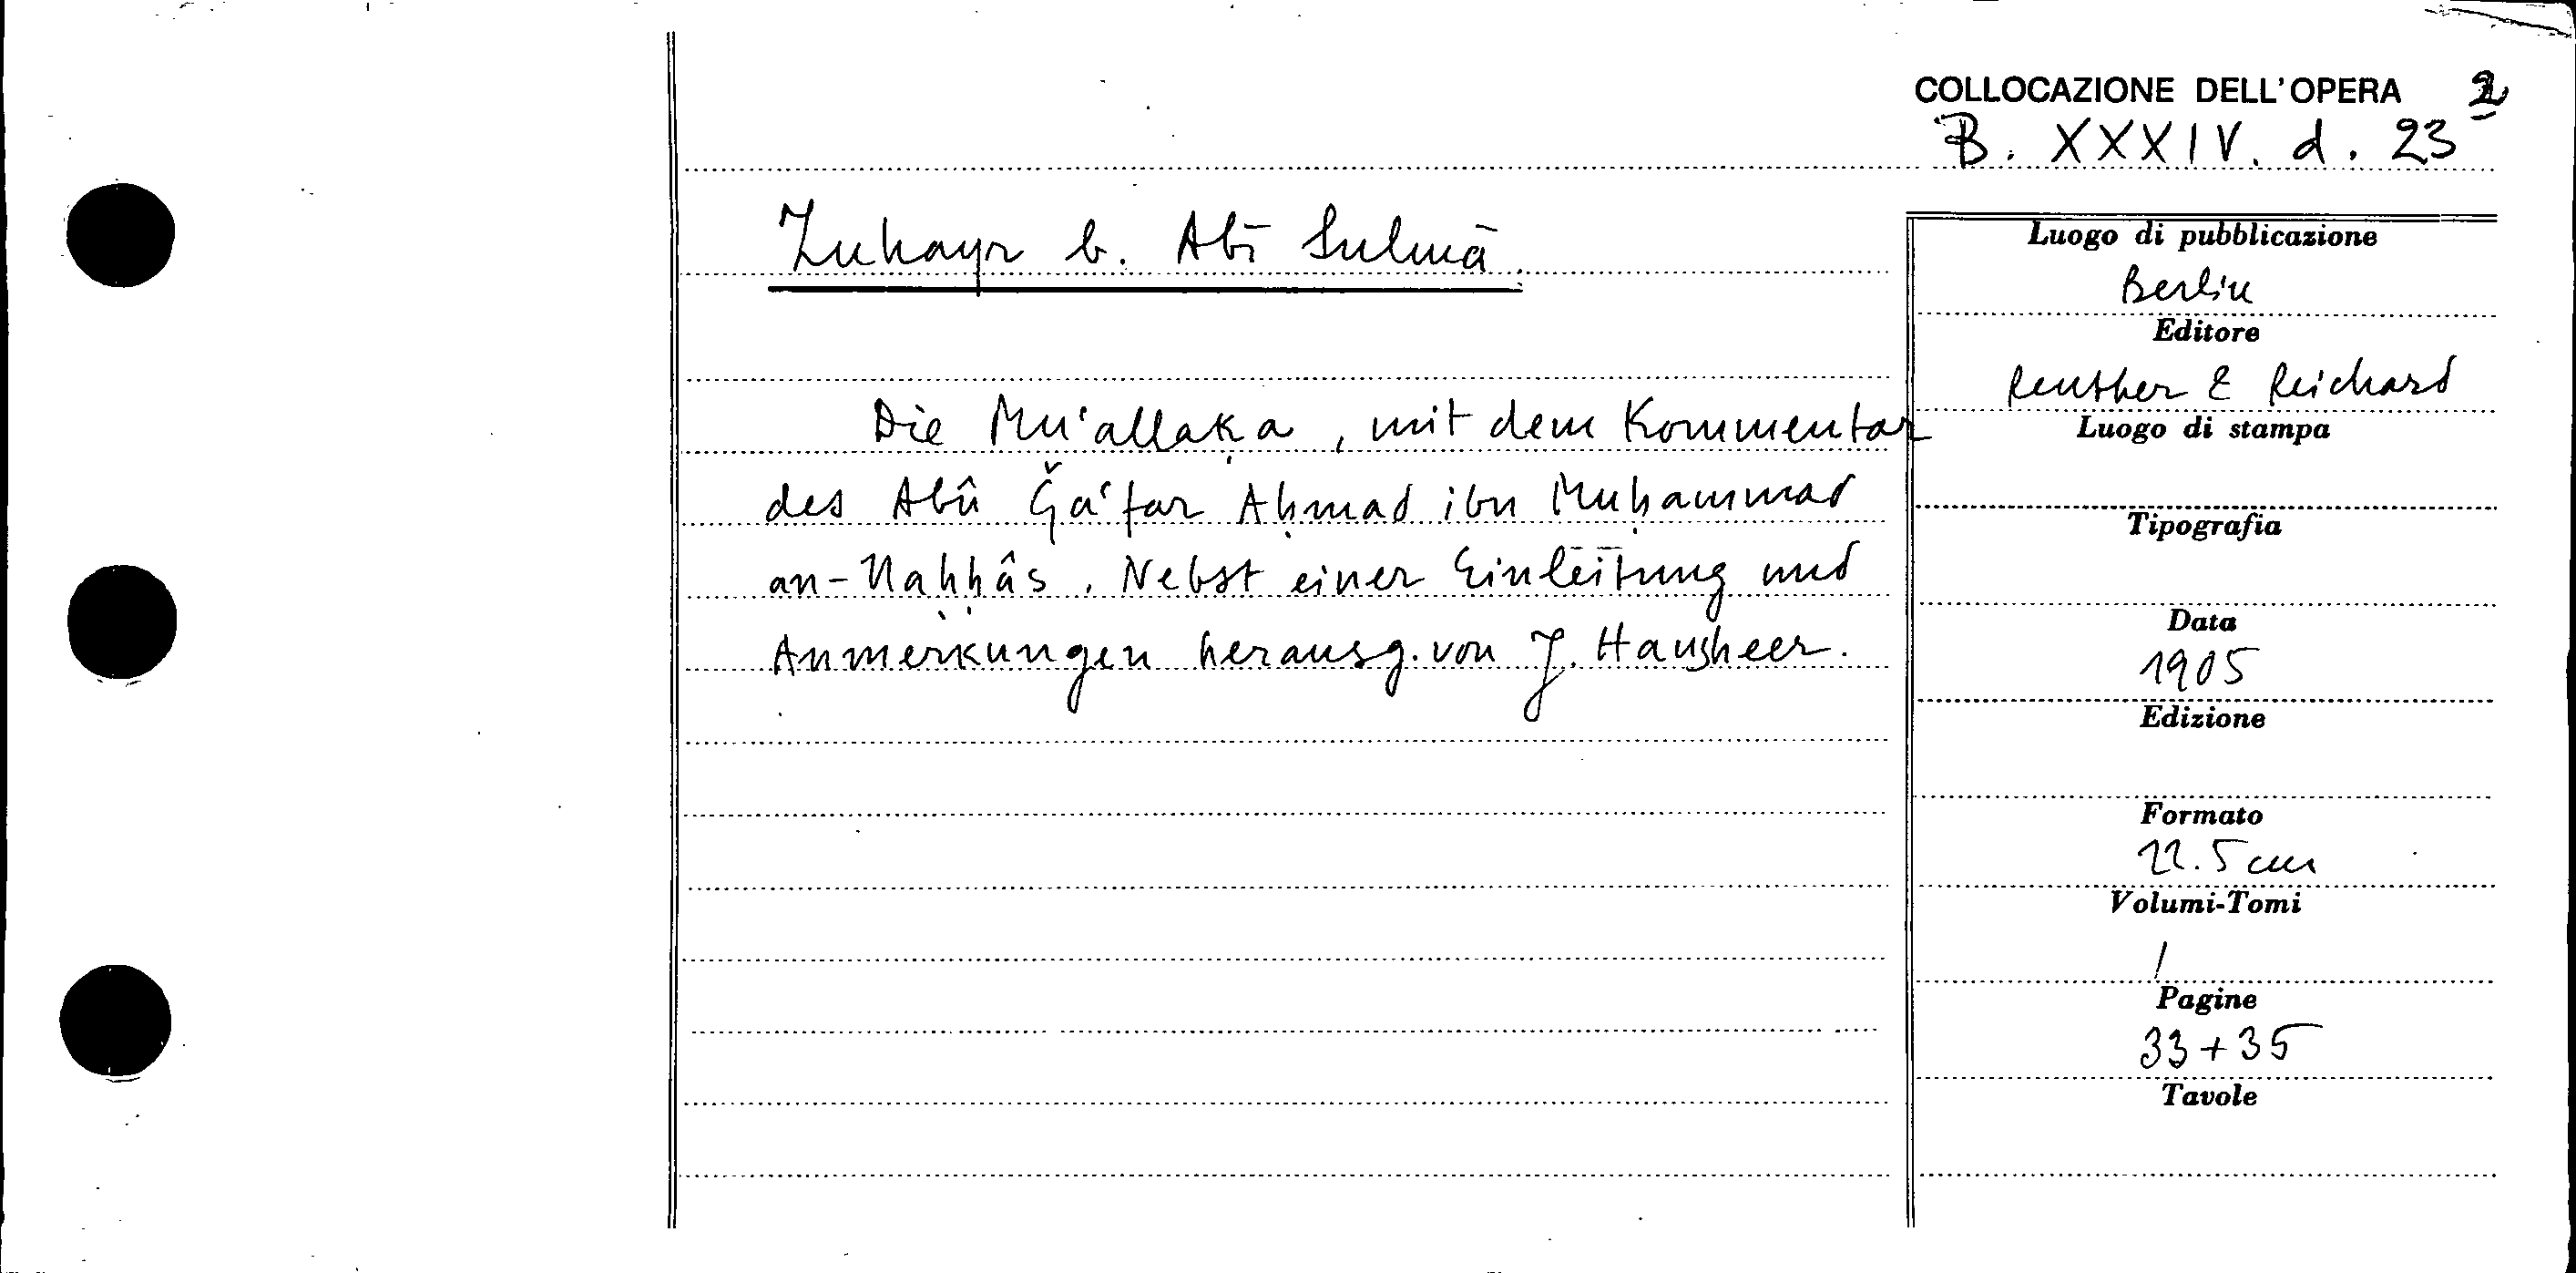 COLLOCAZIONE DELL'OPERA
B. XXXIV. d. 23 2
Zuhayr b. Abī Sulmā
Die Mu'allaḳa, mit dem Kommentar
des Abû Ǧa'far Aḥmad ibn Muḥammad
an-Naḥḥâs. Nebst einer Einleitung und
Anmerkungen herausg. von J. Hausheer.
Luogo di pubblicazione
Berlin
Editore
Reuther & Reichard
Luogo di stampa
Tipografia
Data
1905
Edizione
Formato
22.5 cm
Volumi-Tomi
1
Pagine
33+35
Tavole